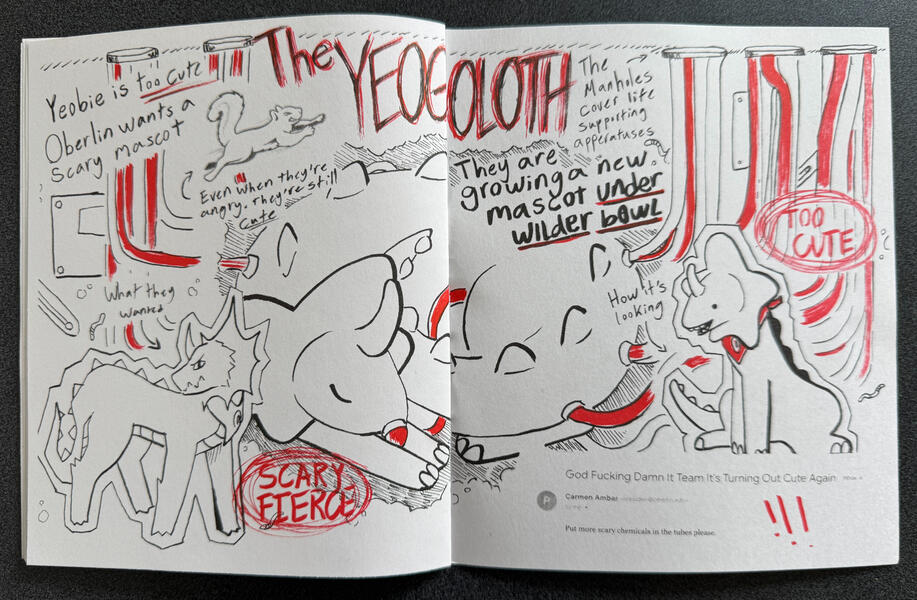 The YEOGOLOTH
Yeobie is too cute
Oberlin wants a
scary mascot
Even when they're
angry. They're still
cute
What they
wanted
SCARY
FIERCE
The
Manholes
cover life
supporting
apperatuses
They are
growing a new
mascot under
wilder bowl
TOO
CUTE
How it's
looking
God Fucking Damn It Team It's Turning Out Cute Again
P
Carmen Ambar
to me
Put more scary chemicals in the tubes please.
!!!